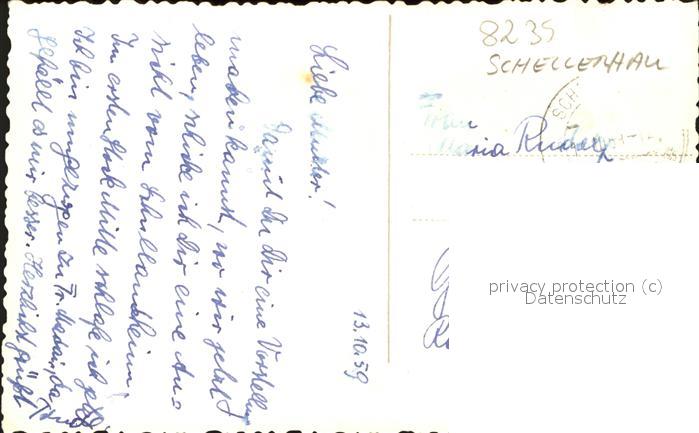 8235
SCHELLERHAU
Frau
Maria Rudolf
13.10.59
Liebe Mutter!
Damit du dir eine Vorstellung
machen kannst, wo wir jetzt
leben, schicke ich dir eine An-
sicht vom Schullandheim.
Im ersten Stock Mitte schlafe ich jetzt.
Ich bin umgezogen zu Fr. da
gefällt es mir besser. Herzlichst grüßt
privacy protection (c)
Datenschutz